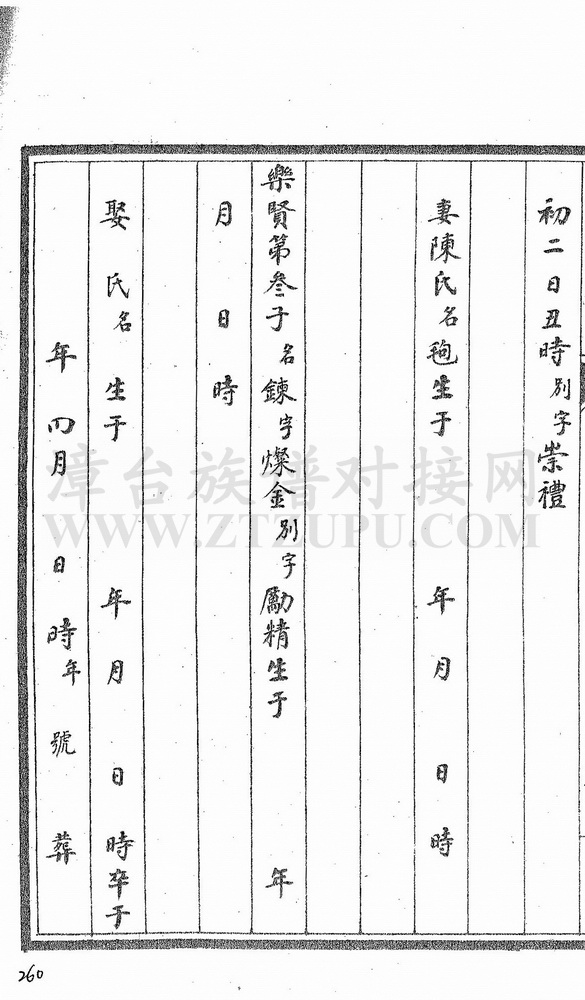 初二日丑時別字崇禮
妻陳氏名䄡生于 年 月 日 時
樂賢第叁子名鍊字燦金別字勵精生于 年
月 日 時
娶 氏名 生于 年 月 日 時卒于
年 四月 日 時年 號 葬
漳台族谱对接网
WWW.ZTZUPU.COM
260